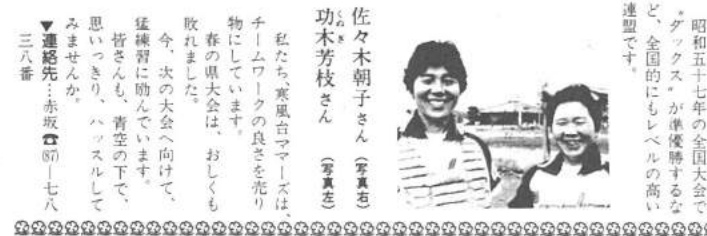 昭和五十七年の全国大会で
〝ダックス〟が準優勝するな
ど、全国的にもレベルの高い
連盟です。
佐々木朝子さん (写真右)
くぬぎ
功木芳枝さん (写真左)
私たち、寒風台ママーズは、
チームワークの良さを売り
物にしています。
春の県大会は、おしくも
敗れました。
今、次の大会へ向けて、
猛練習に励んでいます。
皆さんも、青空の下で、
思いっきり、ハッスルして
みませんか。
▼連絡先…赤坂☎(87)―七八
三八番